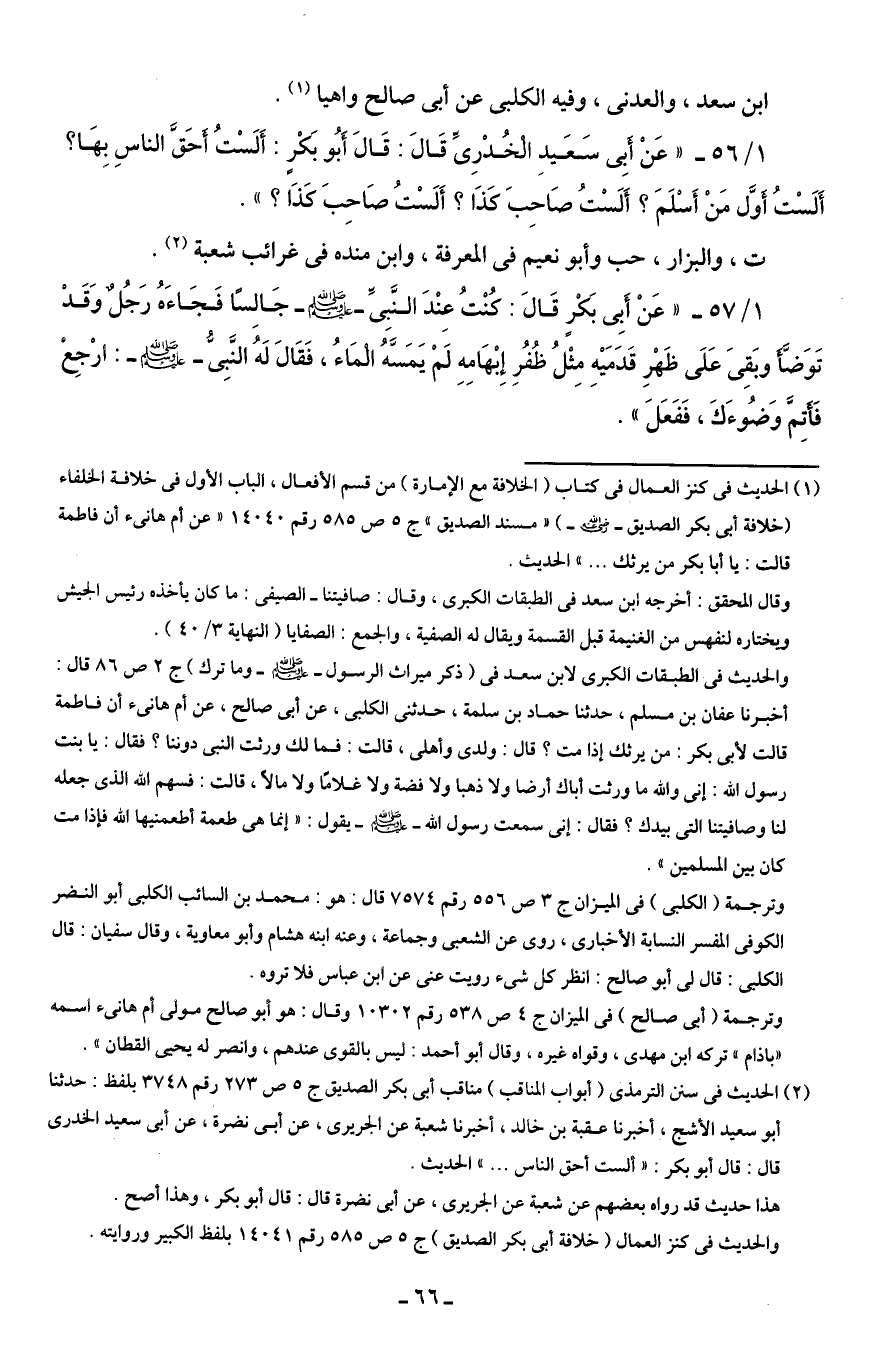 ابن سعد ، والعدنى ، وفيه الكلبى عن أبى صالح واهيا (١) .
٥٦/١ ـ « عَنْ أَبِى سَعَيِدِ الْخُدْرِىِّ قَالَ : قَالَ أَبُو بَكْرٍ : أَلَسْتُ أَحَقَّ الناسِ بِهَا؟
أَلَسْتُ أَوَّل مَنْ أَسْلَمَ ؟ أَلَسْتُ صَاحِبَ كَذَا ؟ أَلَسْتُ صَاحِبَ كَذَا ؟ » .
ت ، والبزار ، حب وأبو نعيم فى المعرفة ، وابن منده فى غرائب شعبة (٢) .
٥٧/١ ـ « عَنْ أَبِى بَكْرٍ قَالَ : كُنْتُ عِنْدَ النَّبِىِّ ـ ﷺ ـ جَالِسًا فَجَاءَهُ رَجُلٌ وَقَدْ
تَوَضَّأَ وبَقِىَ عَلَى ظَهْرِ قَدَمَيْهِ مِثْلُ ظُفُرِ إِبْهَامِهِ لَمْ يَمَسَّهُ الْمَاءُ ، فَقَالَ لَهُ النَّبِىُّ ـ ﷺ ـ : ارْجِعْ
فَأَتِمَّ وَضُوءَكَ ، فَفَعَلَ » .
(١) الحديث فى كنز العمال فى كتاب ( الخلافة مع الإمارة ) من قسم الأفعال ، الباب الأول فى خلافة الخلفاء
(خلافة أبى بكر الصديق ـ رضي الله عنه ـ ) « مسند الصديق » ج ٥ ص ٥٨٥ رقم ١٤٠٤٠ « عن أم هانىء أن فاطمة
قالت : يا أبا بكر من يرثك ... » الحديث .
وقال المحقق : أخرجه ابن سعد فى الطبقات الكبرى ، وقال : صافيتنا ـ الصيفى : ما كان يأخذه رئيس الجيش
ويختاره لنفهس من الغنيمة قبل القسمة ويقال له الصفية ، والجمع : الصفايا ( النهاية ٣/ ٤٠ ) .
والحديث فى الطبقات الكبرى لابن سعد فى ( ذكر ميراث الرسول ـ ﷺ ـ وما ترك ) ج ٢ ص ٨٦ قال :
أخبرنا عفان بن مسلم ، حدثنا حماد بن سلمة ، حدثنى الكلبى ، عن أبى صالح ، عن أم هانىء أن فاطمة
قالت لأبى بكر : من يرثك إذا مت ؟ قال : ولدى وأهلى ، قالت : فما لك ورثت النبى دوننا ؟ فقال : يا بنت
رسول الله : إنى والله ما ورثت أباك أرضا ولا ذهبا ولا فضة ولا غلامًا ولا مالاً ، قالت : فسهم الله الذى جعله
لنا وصافيتنا التى بيدك ؟ فقال : إنى سمعت رسول الله ـ ﷺ ـ يقول : « إنما هى طعمة أطعمنيها الله فإذا مت
كان بين المسلمين » .
وترجمة ( الكلبى ) فى الميزان ج ٣ ص ٥٥٦ رقم ٧٥٧٤ قال : هو : محمد بن السائب الكلبى أبو النضر
الكوفى المفسر النسابة الأخبارى ، روى عن الشعبى وجماعة ، وعنه ابنه هشام وأبو معاوية ، وقال سفيان : قال
الكلبى : قال لى أبو صالح : انظر كل شىء رويت عنى عن ابن عباس فلا تروه .
وترجمة ( أبى صالح ) فى الميزان ج ٤ ص ٥٣٨ رقم ١٠٣٠٢ وقال : هو أبو صالح مولى أم هانىء اسمه
«باذام » تركه ابن مهدى ، وقواه غيره ، وقال أبو أحمد : ليس بالقوى عندهم ، وانصر له يحيى القطان » .
(٢) الحديث فى سنن الترمذى ( أبواب المناقب ) مناقب أبى بكر الصديق ج ٥ ص ٢٧٣ رقم ٣٧٤٨ بلفظ : حدثنا
أبو سعيد الأشج ، أخبرنا عقبة بن خالد ، أخبرنا شعبة عن الجريرى ، عن أبى نضرة ، عن أبى سعيد الخدرى
قال : قال أبو بكر : « ألست أحق الناس ... » الحديث .
هذا حديث قد رواه بعضهم عن شعبة عن الجريرى ، عن أبى نضرة قال : قال أبو بكر ، وهذا أصح .
والحديث فى كنز العمال ( خلافة أبى بكر الصديق ) ج ٥ ص ٥٨٥ رقم ١٤٠٤١ بلفظ الكبير وروايته .
ـ ٦٦ ـ